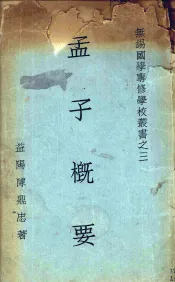 無錫國學專修學校叢書之三
孟子概要
益陽陳鼎忠著